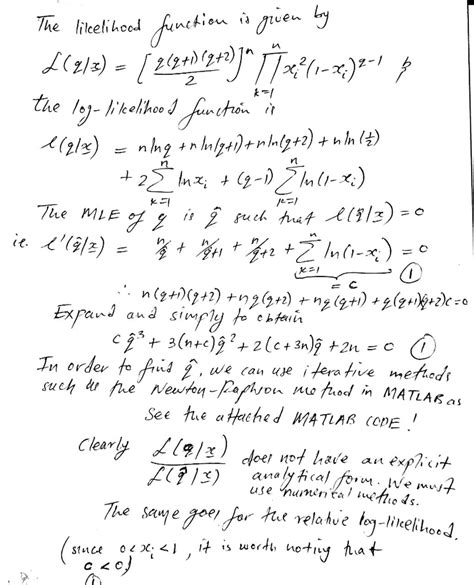 The likelihood function is given by
L(q|x) = [q(q+1)(q+2)/2]^n ∏_{k=1}^{n} x_i^2 (1-x_i)^{q-1}
the log-likelihood function is
l(q|x) = n ln q + n ln(q+1) + n ln(q+2) + n ln(1/2)
+ 2 ∑_{k=1}^{n} ln x_i + (q-1) ∑_{k=1}^{n} ln(1-x_i)
The MLE of q is q̂ such that l(q̂|x) = 0
ie. l'(q̂|x) = n/q̂ + n/q̂+1 + n/q̂+2 + ∑_{k=1}^{n} ln(1-x_i) = 0
= c ①
∴ n(q+1)(q+2) + nq(q+2) + nq(q+1) + q(q+1)(q+2)c = 0
Expand and simply to obtain
c q̂^3 + 3(n+c)q̂^2 + 2(c+3n)q̂ + 2n = 0 ①
In order to find q̂, we can use iterative methods
such as the Newton-Raphson method in MATLAB as
See the attached MATLAB CODE!
Clearly L(q|x)/L(q̂|x) does not have an explicit
analytical form. We must
use numerical methods.
The same goes for the relative log-likelihood.
(since 0<x_i<1, it is worth noting that
c<0)
①